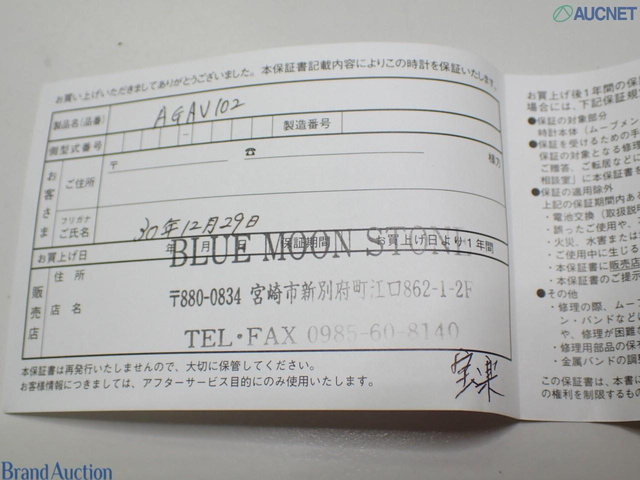 AUCNET
お買い上げいただきましてありがとうございました。本保証書記載内容によりこの時計を保証いたします。
製品名(品番) AGAV102
側型式番号 製造番号
お客さま
ご住所 〒 ☎
フリガナ
ご氏名 様方
30年12月29日
お買上げ日 年 月 日 保証期間 お買上げ日より1年間
BLUE MOON STONE
販売店
住所
店名
〒880-0834 宮崎市新別府町江口862-1-2F
TEL・FAX 0985-60-8140
本保証書は再発行いたしませんので、大切に保管してください。
お客様情報につきましては、アフターサービス目的にのみ使用いたします。
お買上げ後1年間の保
場合には、下記保証規
●保証の対象部分
時計本体(ムーブメン
●保証を受けるための手
保証の対象となる修理
ご贈答、ご転居などに
相談室」に本保証書を
●保証の適用除外
上記の保証期間内であ
・電池交換(取扱説明
・誤ったご使用や、
・火災、水害または
・ご使用中に生じる
・本保証書に販売店
・本保証書のご提示
●その他
・修理の際、ムー
ン・バンドなど
や、修理が困難
・修理用部品の保
・金属バンドの調
この保証書は、本書に
の権利を制限するもの
Brand Auction